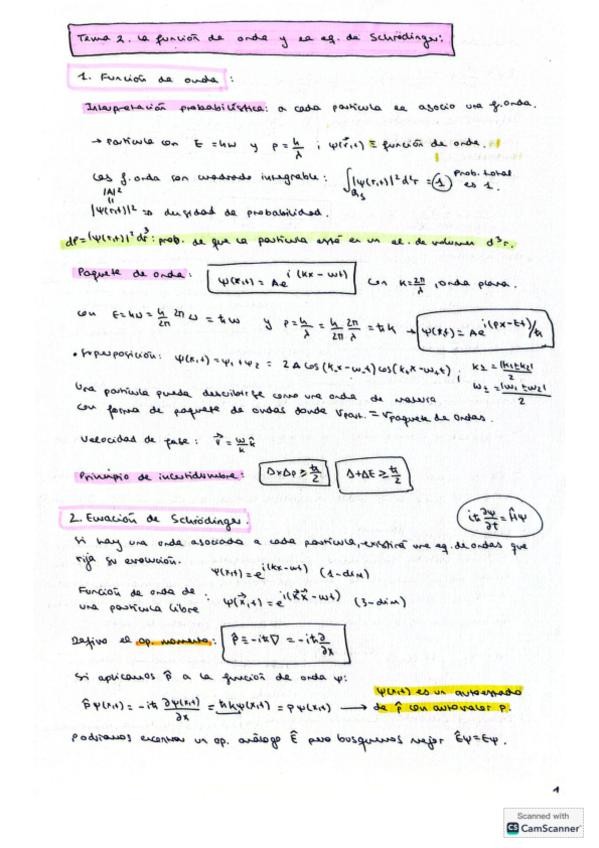 Tema 2. La función de onda y la eq. de Schrödinger:
1. Función de onda:
Interpretación probabilística: a cada partícula le asocio una f. onda.
→ Partícula con E = hω y p = h/λ ; ψ(r⃗,t) ≡ función de onda.
Las f. onda son cuadrado integrable: ∫|ψ(r,t)|² d³r = 1 Prob. total es 1.
|A|²
||
|ψ(r,t)|² ⇒ densidad de probabilidad.
dP = |ψ(r,t)|² dr³: prob. de que la partícula esté en un el. de volumen d³r.
Paquete de onda: ψ(x,t) = Ae^{i(kx - ωt)} con k = 2π/λ, onda plana.
con E = hν = h/2π 2πν = ħω y p = h/λ = h/2π 2π/λ = ħk → ψ(x,t) = Ae^{i(px - Et)/ħ}
• Superposición: ψ(x,t) = ψ₁ + ψ₂ = 2A cos(k₁x - ω₁t) cos(k₂x - ω₂t) ; k₂ = |k₁±k₂|/2
ω₂ = |ω₁ ± ω₂|/2
Una partícula puede describirse como una onda de materia
con forma de paquete de ondas donde v_part. = v_paquete de ondas.
Velocidad de fase: v⃗ = ω/k k̂
Principio de incertidumbre: ΔxΔp ≥ ħ/2 ΔtΔE ≥ ħ/2
2. Ecuación de Schrödinger. iħ ∂ψ/∂t = Ĥψ
Si hay una onda asociada a cada partícula, existirá una eq. de ondas que
rija su evolución.
ψ(x,t) = e^{i(kx - ωt)} (1-dim)
Función de onda de
una partícula libre : ψ(x⃗,t) = e^{i(k⃗x⃗ - ωt)} (3-dim)
Defino el op. momento: p̂ ≡ -iħ∇ = -iħ ∂/∂x
Si aplicamos p̂ a la función de onda ψ:
p̂ψ(x,t) = -iħ ∂ψ(x,t)/∂x = ħkψ(x,t) = pψ(x,t) → ψ(x,t) es un autoestado
de p̂ con autovalor p.
Podríamos encontrar un op. análogo Ê pero busquemos mejor Êψ = Eψ.
1
Scanned with
CS CamScanner